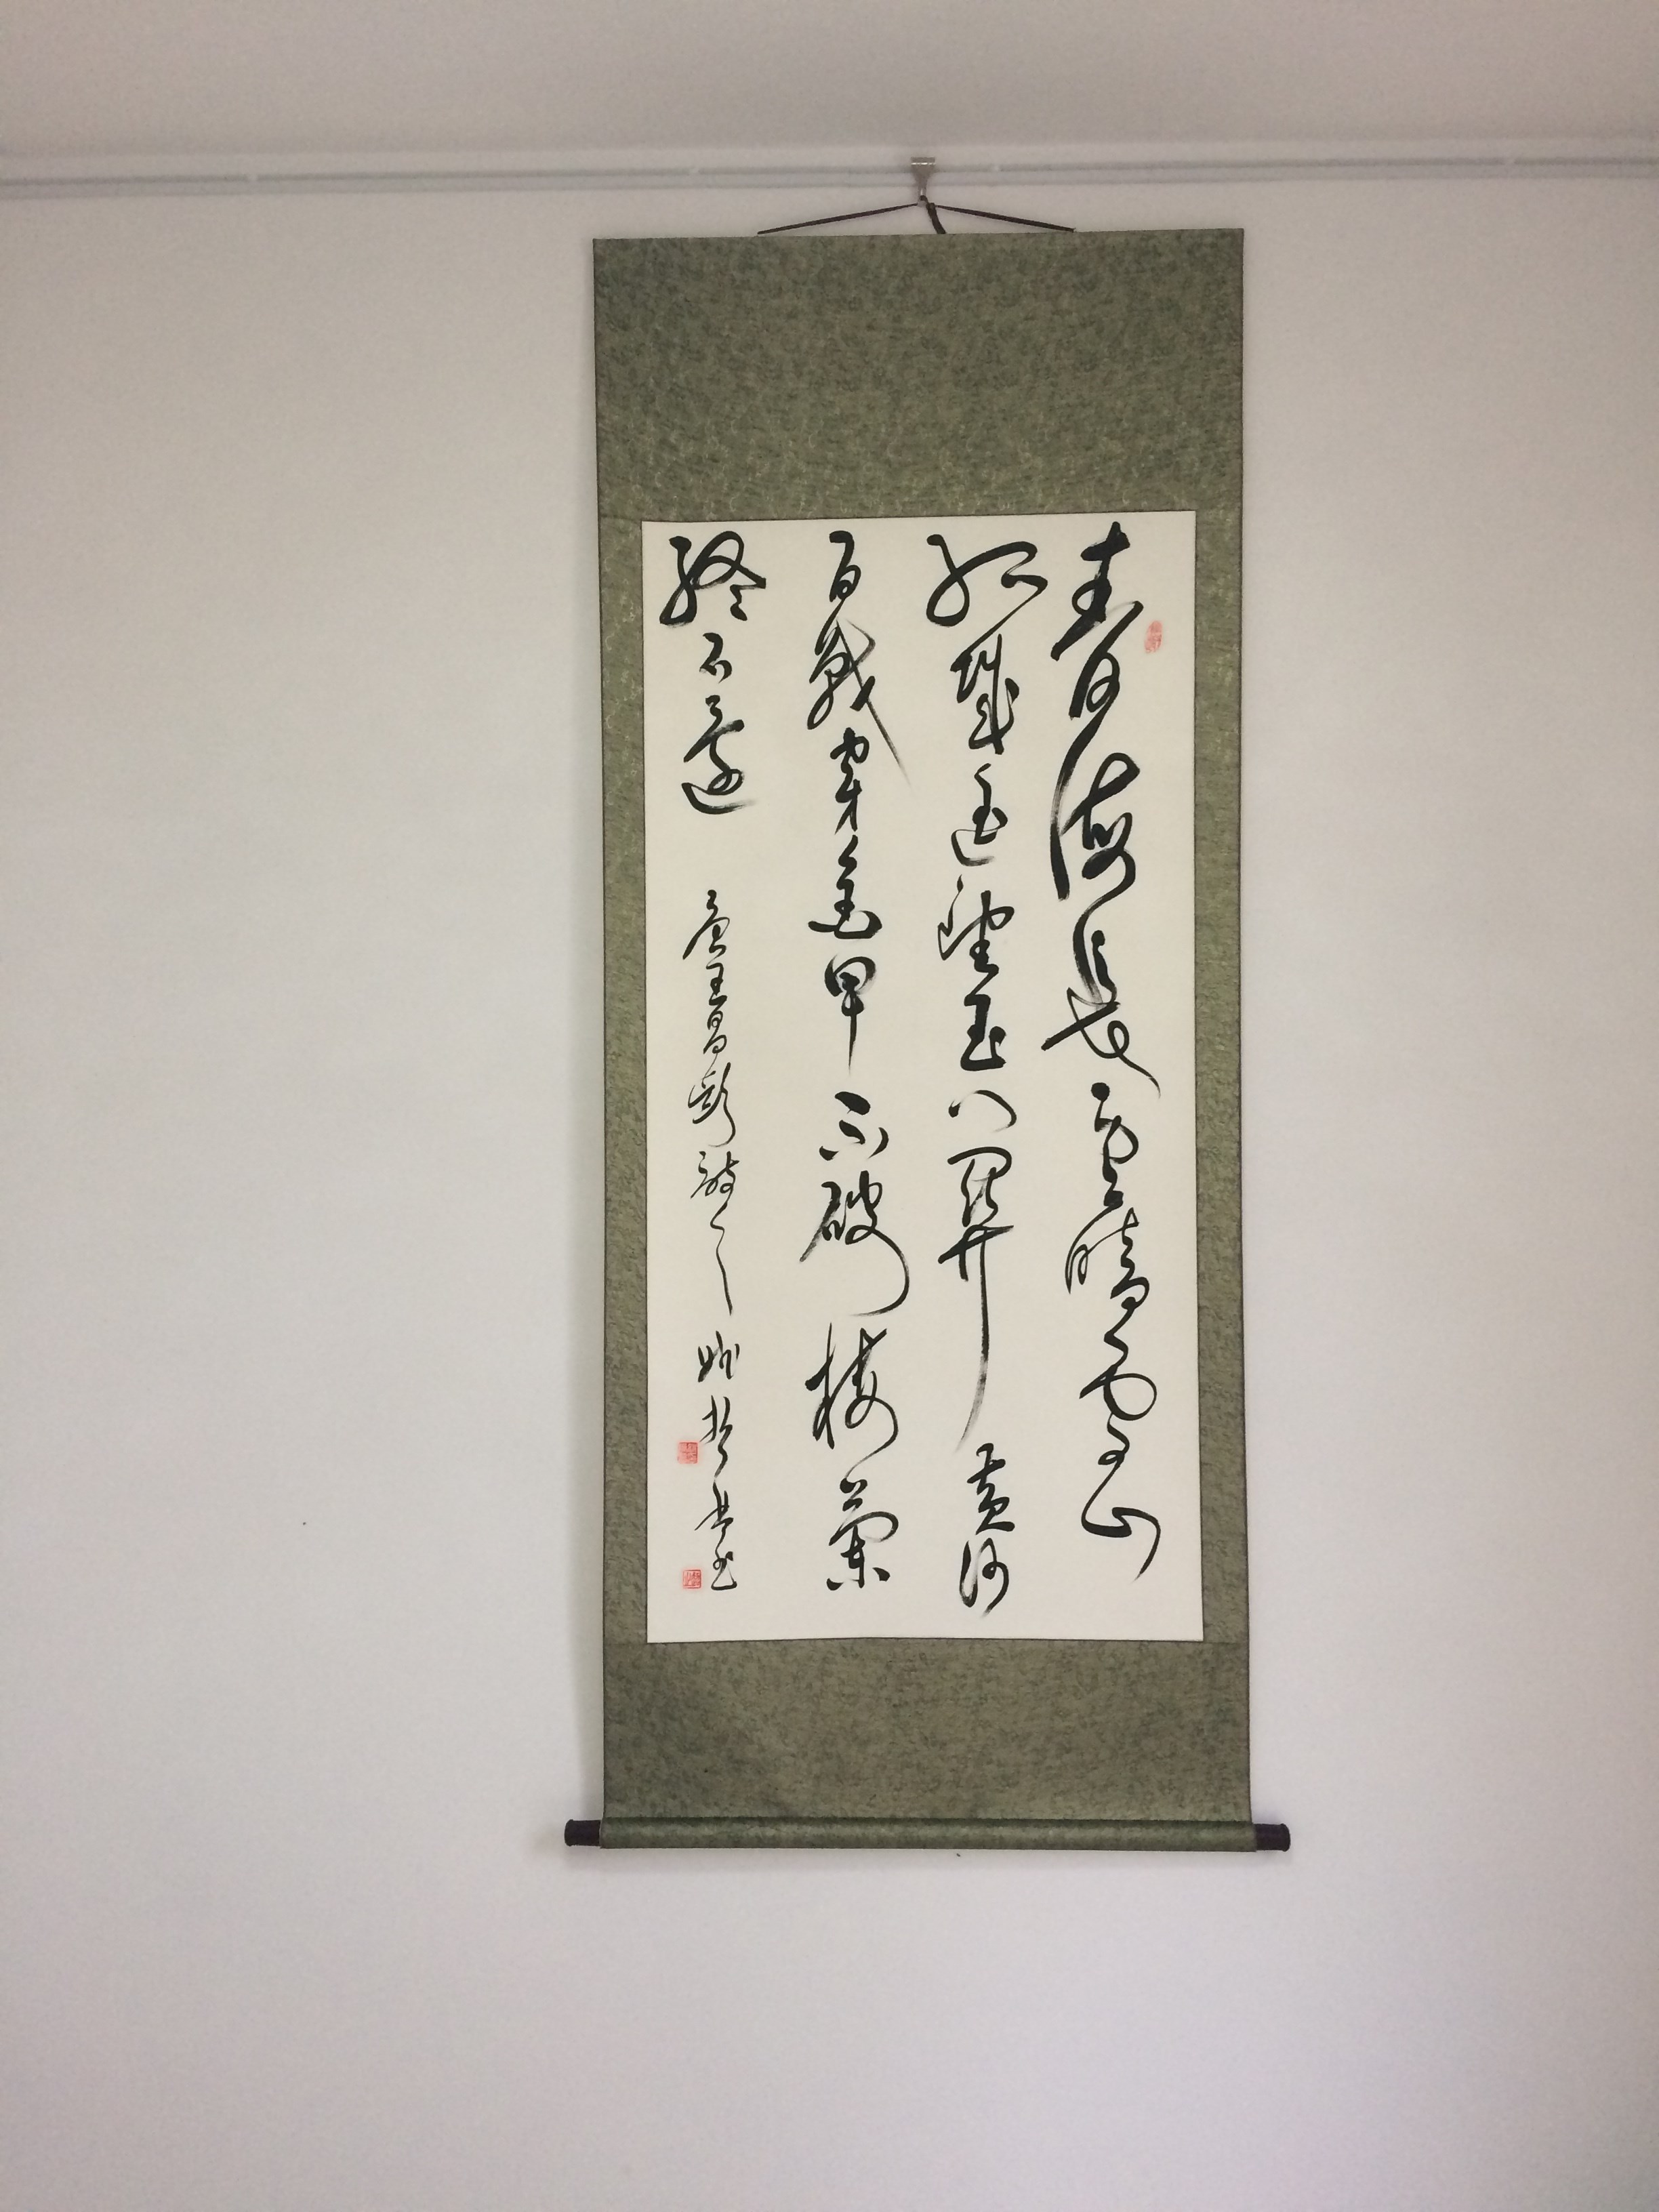 青海長雲暗雪山
孤城遙望玉門關黃沙
百戰穿金甲不破樓蘭
終不還 唐王昌齡詩